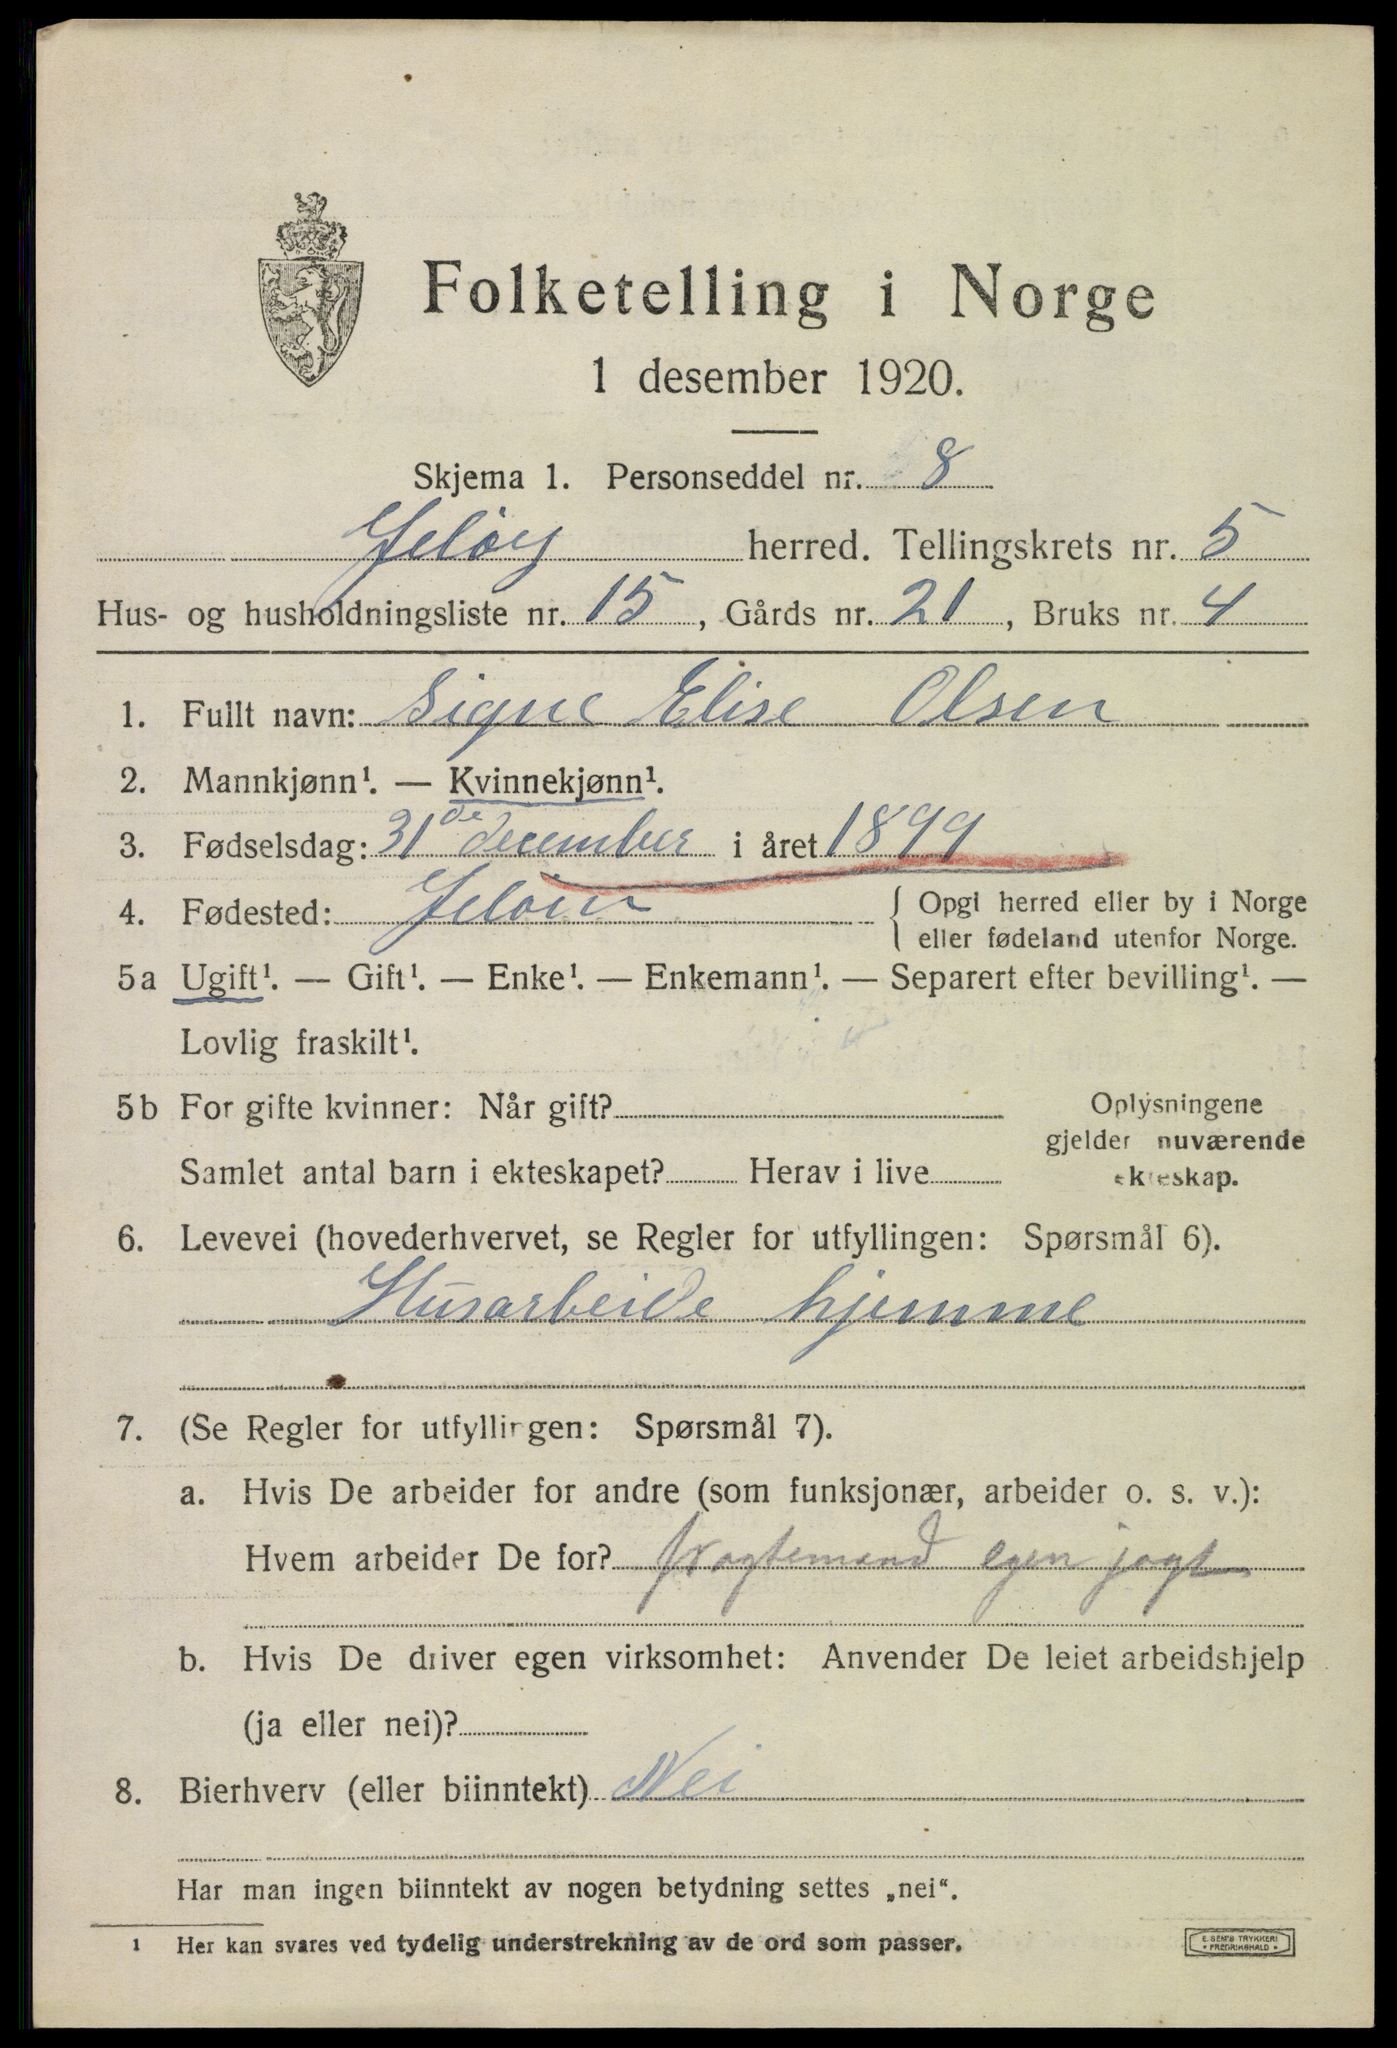 Folketelling i Norge
1 desember 1920.
Skjema 1. Personseddel nr. 8
Jeløy herred. Tellingskrets nr. 5
Hus- og husholdningsliste nr. 15, Gårds nr. 21, Bruks nr. 4
1. Fullt navn: Signe Elise Olsen
2. Mannkjønn¹. — Kvinnekjønn¹.
3. Fødselsdag: 31de december i året 1899
4. Fødested: Jeløen { Opgi herred eller by i Norge
eller fødeland utenfor Norge.
5a Ugift¹. — Gift¹. — Enke¹. — Enkemann¹. — Separert efter bevilling¹. —
Lovlig fraskilt¹.
5b For gifte kvinner: Når gift? Oplysningene
gjelder nuværende
Samlet antal barn i ekteskapet? Herav i live ekteskap.
6. Levevei (hovederhvervet, se Regler for utfyllingen: Spørsmål 6).
Husarbeide hjemme
7. (Se Regler for utfyllingen: Spørsmål 7).
a. Hvis De arbeider for andre (som funksjonær, arbeider o. s. v.):
Hvem arbeider De for? fragtemand egen jagt
b. Hvis De driver egen virksomhet: Anvender De leiet arbeidshjelp
(ja eller nei)?
8. Bierhverv (eller biinntekt) Nei
Har man ingen biinntekt av nogen betydning settes „nei“.
1 Her kan svares ved tydelig understrekning av de ord som passer.
E. SEM'S TRYKKERI
• FREDRIKSHALD •